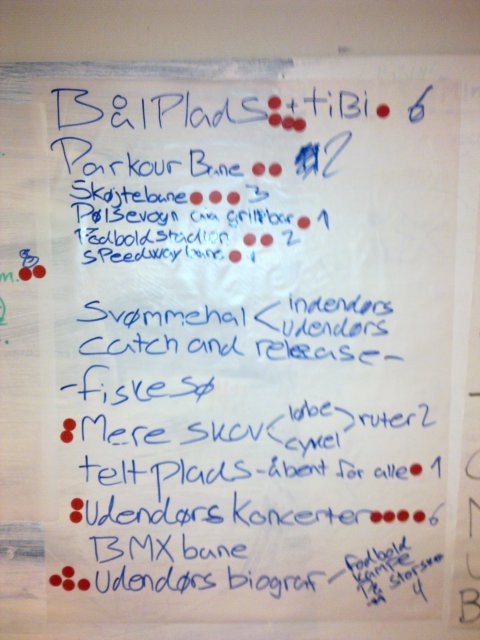 BålPlads + tiBi 6
Parkour Bane 2
Skøjtebane 3
PølSevogn grillbar 1
Fodboldstadion 2
SPeedwaybane 1
8
m.
Svømmehal < indendørs
udendørs
Catch and release -
- fiskesø
Mere skov < løbe > ruter 2
cykel
telt plads - åbent for alle 1
Udendørs koncerter 6
BMX bane
Udendørs biograf - Fodbold
kampe
På storskæ
4